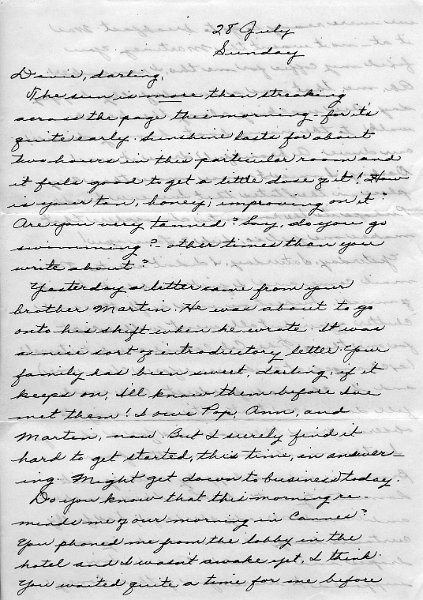 28 July
Sunday
Davie, darling,
The sun is more than streaking
across the page this morning for it's
quite early. Sunshine lasts for about
two hours in this particular room and
it feels good to get a little dose of it! How
is your tan, honey; improving on it?
Are you very tanned? Say, do you go
swimming? other times than you
write about?
Yesterday a letter came from your
brother Martin. He was about to go
onto his shift when he wrote. It was
a nice sort of introductory letter. Your
family has been sweet, darling; if it
keeps on, I'll know them before I've
met them! I owe Pop, Ann, and
Martin, now. But I surely find it
hard to get started, this time, in answer-
ing. Might get down to business today.
Do you know that this morning re-
minds me of our morning in Cannes?
You phoned me from the lobby in the
hotel and I wasn't awake yet, I think.
You waited quite a time for me before